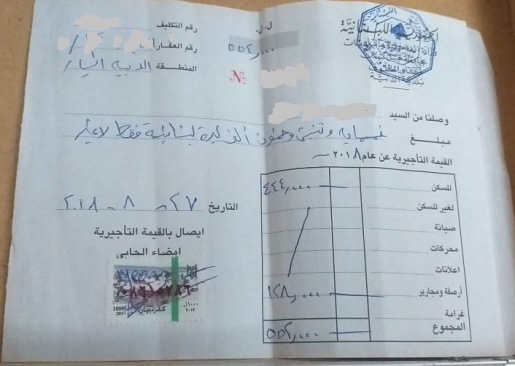 الجمهورية اللبنانية
ل.ل.
رقم التكليف
رقم العقار
٥٥٢,٠٠٠
المنطقة الدبية السيار
№
وصلنا من السيد
مبلغ خمسماية وإثنين وخمسون ألف ليرة لبنانية فقط لا غير
القيمة التأجيرية عن عام ٢٠١٨
للسكن ٤٢٤,٠٠٠
لغير للسكن
صيانة
محركات
اعلانات
أرصفة ومجارير ١٢٨,٠٠٠
غرامة
المجموع ٥٥٢,٠٠٠
التاريخ ٢٧ - ٨ - ٢٠١٨
ايصال بالقيمة التأجيرية
امضاء الجابي
١٠٠٠ل.ل
٢٠١٧
1000
2017